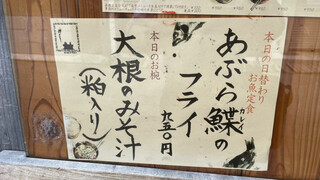 本日の日替わり
お魚定食
あぶら鰈の
カレイ
フライ
九五〇円
本日のお椀
大根のみそ汁
(粕入り)